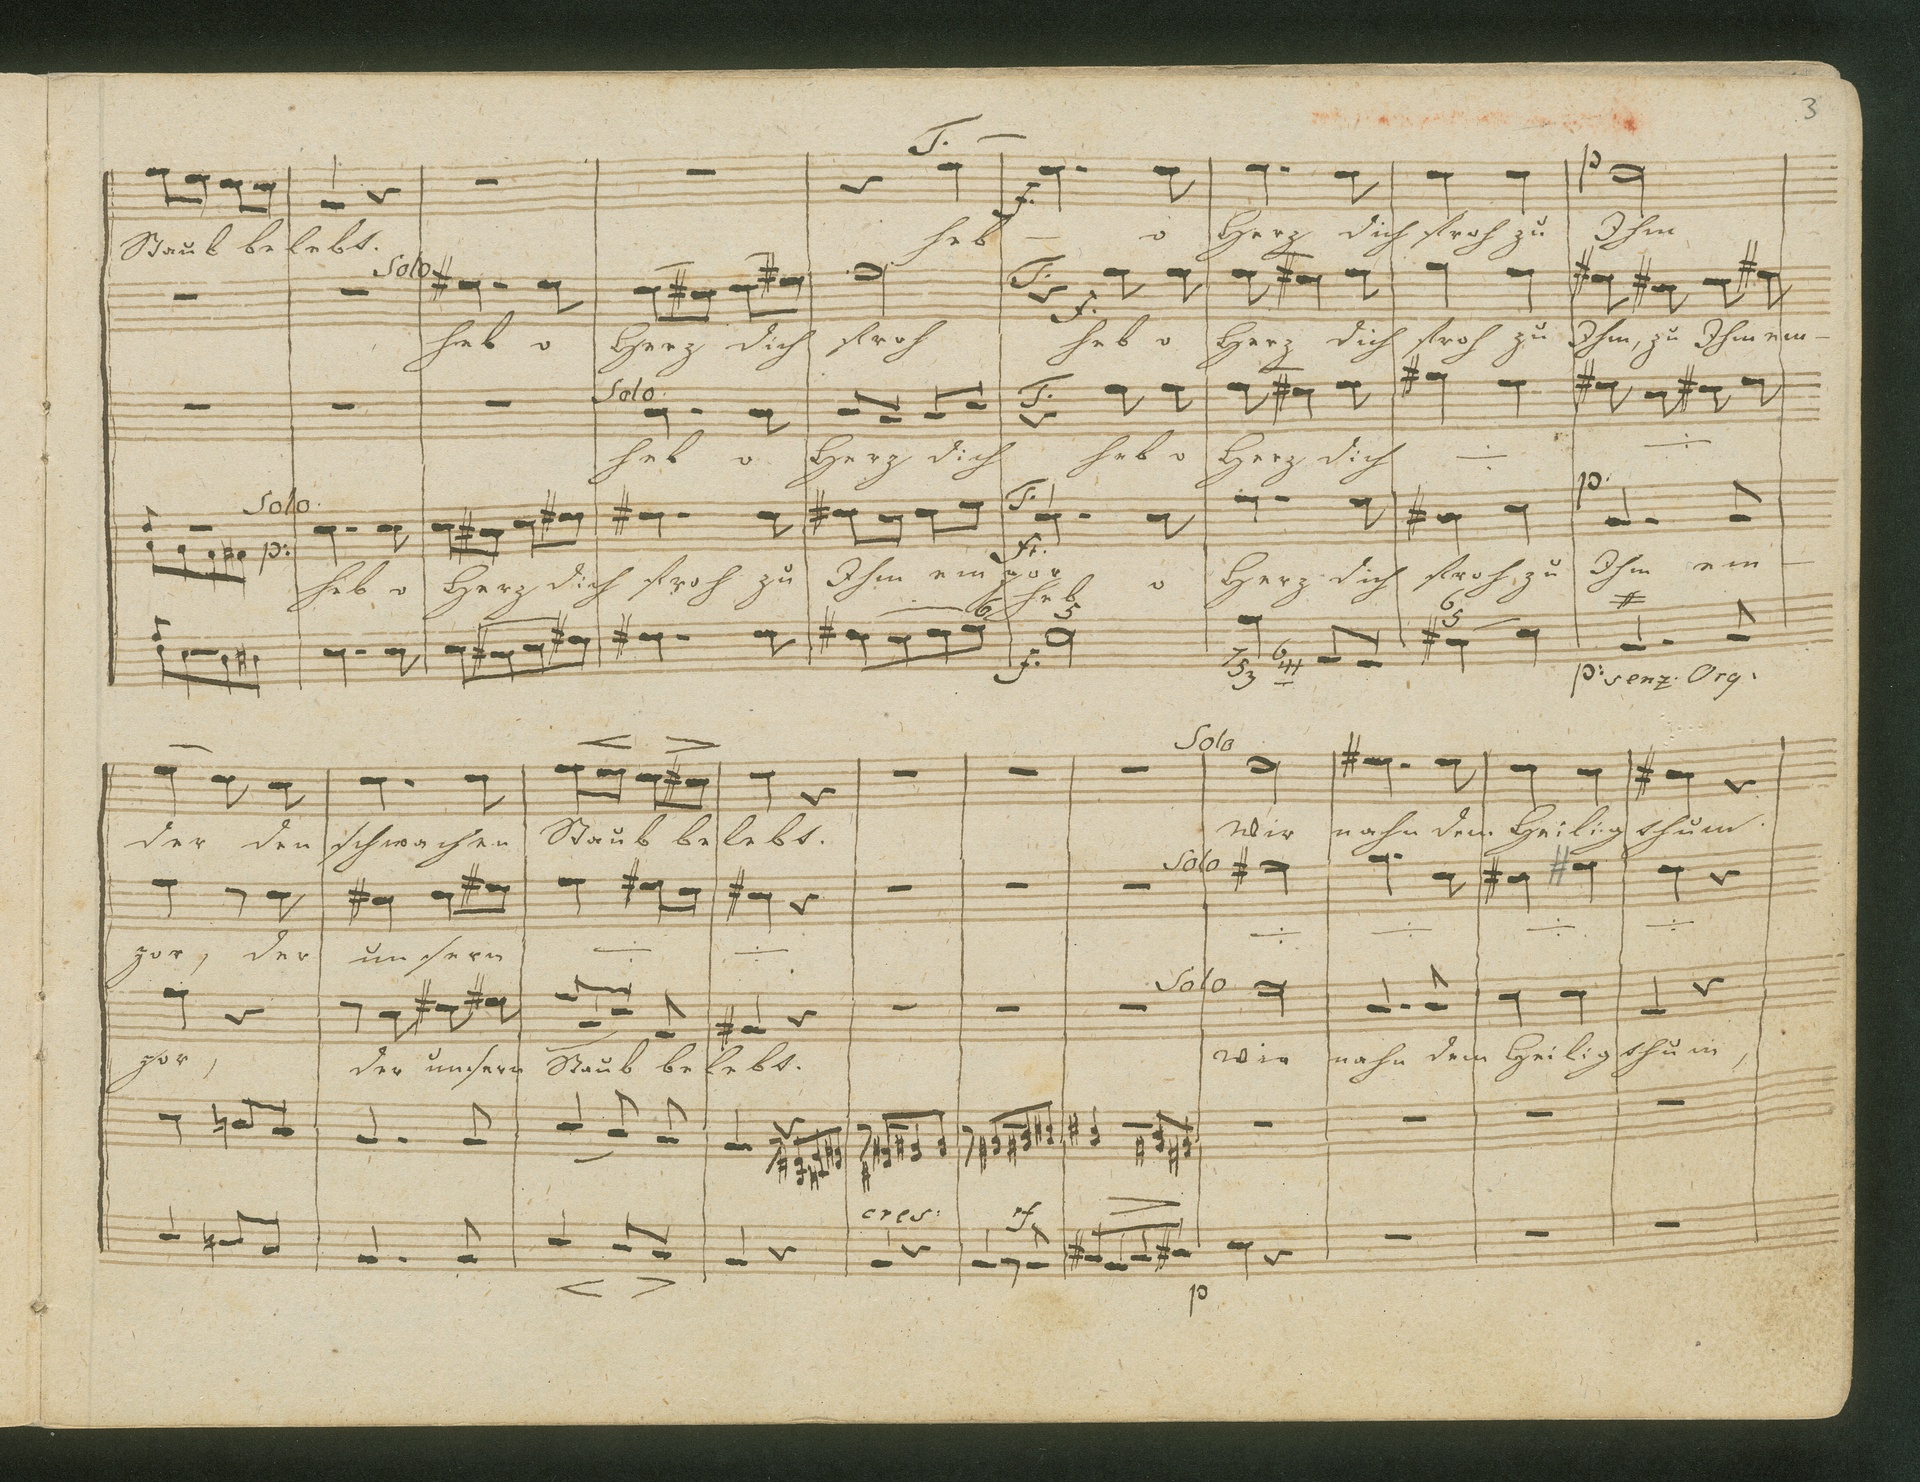 3
T.
f. p
heb — o Herz dich froh zu Ihm
Staub belebt.
Solo T. f.
heb o Herz dich froh heb o Herz dich froh zu Ihm, zu Ihm em-
Solo. T.
heb o Herz dich heb o Herz dich
Solo. p: T. p.
f.
heb o Herz dich froh zu Ihm em por o Herz dich froh zu Ihm em —
heb
6 5 6 5 #
f. 7 5 3 6 4 p: senz. Org.
Solo
der den schwachen Staub belebt. wir nahn dem Heiligthum.
Solo
por, der unsern
Solo
por, der unsern Staub belebt. wir nahn dem Heiligthum,
cres: rf
p